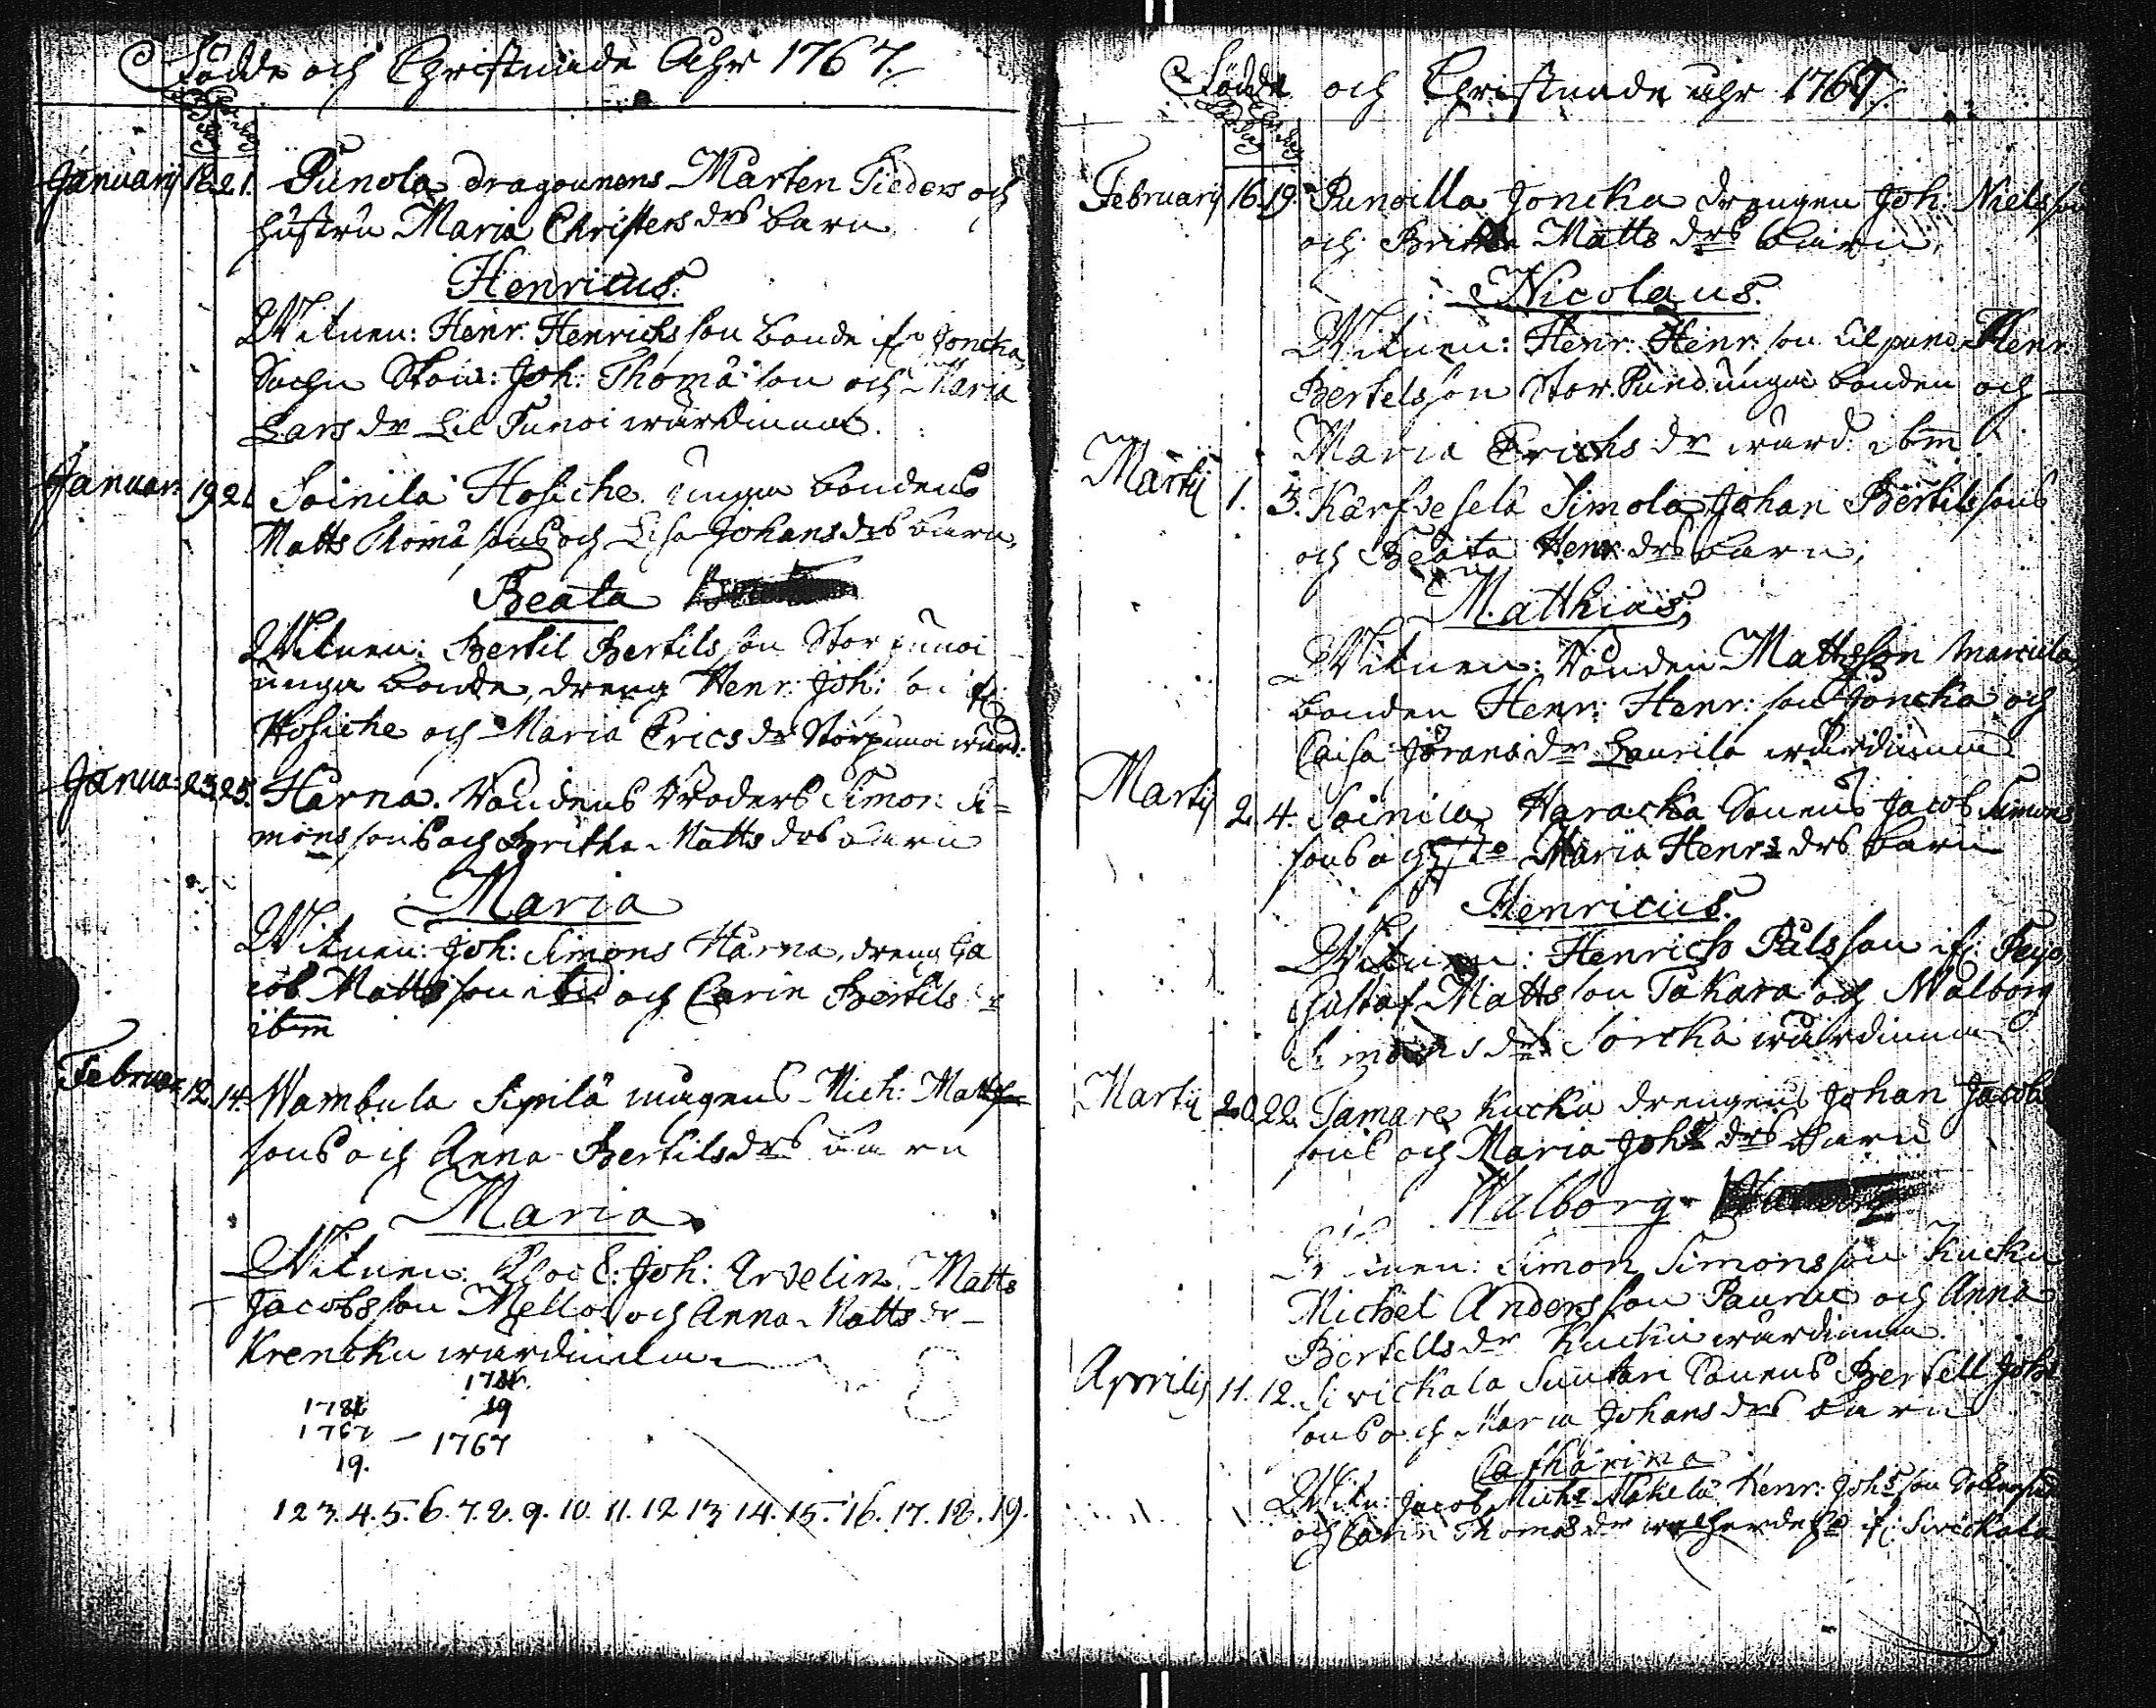 Födde och Christnade Åhr 1767.
Januarij 18. 21. Punola dragounens Mårten Fieders och
hustru Maria Christers drs barn
Henricus.
Witnen: Henr: Henrichsson bonde ifr: Joncka
Sochn Skow: Joh: Thomasson och Maria
Lars dr Lil Punoi wärdinna.
Januar: 19 21 Soinila Hosiche unga bondens
Matts Thomæ sons och Lisa Johans drs barn,
Beata
Witnen: Bertil Bertilsson Stor punoi
unga bonde, dreng Henr: Joh: ifr
Hosiche och Maria Erics dr Storpunoi wärd:
Janua: 23. 25. Härna. Bondens Broders Simon Si-
monssons och Britha Matts drs barn
Maria
Witnen: Joh: Simons Härna, dreng Ja
cob Mattsson ibid och Carin Bertils dr
ibm
Februar: 12. 14. Wambula Sipilä mågens Mich: Matts
sons och Anna Bertils drs barn
Maria
Witnen: Joh: Arvelin Matts
Jacobsson Mellola och Anna Matts dr
Krencku wärdinna
1786.
1786 19
1767 – 1767
19.
1 2 3. 4. 5. 6. 7. 8. 9. 10. 11. 12 13 14. 15. 16. 17. 18. 19.
Födde och Christnade åhr 1767
Februarij 16. 19. Punoilla Joncka drengen Joh: Nielsson
och Britha Matts drs barn.
Nicolaus.
Witnen: Henr: Henr: son Lil puno, Henr:
Bertelsson Stor Puno unga bonden och
Maria Erichs dr wärd: ibm
Martij 1. 3. Karfvesela Simola Johan Bertilssons
och Beata Henr: drs barn,
Matthias,
Witnen: Bonden Mattsson Marcula,
bonden Henr: Henr: son Joncka och
Caisa Jörans dr Laurila wärdinna
Martij 2. 4. Soinila Haracka Sonens Jacob Simons
sons och Maria Henrs drs barn
Henricus.
Witnen: Henrich Pålsson ifr: Peyo
Gustaf Mattsson Takara och Walborg
Simons dr Soncka wärdinna
Martij 20. 22. Tamare Kucku drengens Johan Jacobs
sons och Maria Johs drs barn
Walborg
Witnen: Simon Simonsson Kucku
Michel Andersson Pauru och Anna
Bertells dr Kucku wärdinna.
Aprilis 11. 12. Sirickala Suutari Sonens Bertell Johs
sons och Maria Johans drs barn
Catharina
Witn: Jacob Michs Mäkelä Henr: Johsson
och Carin Thomas dr ifr: Sirickala